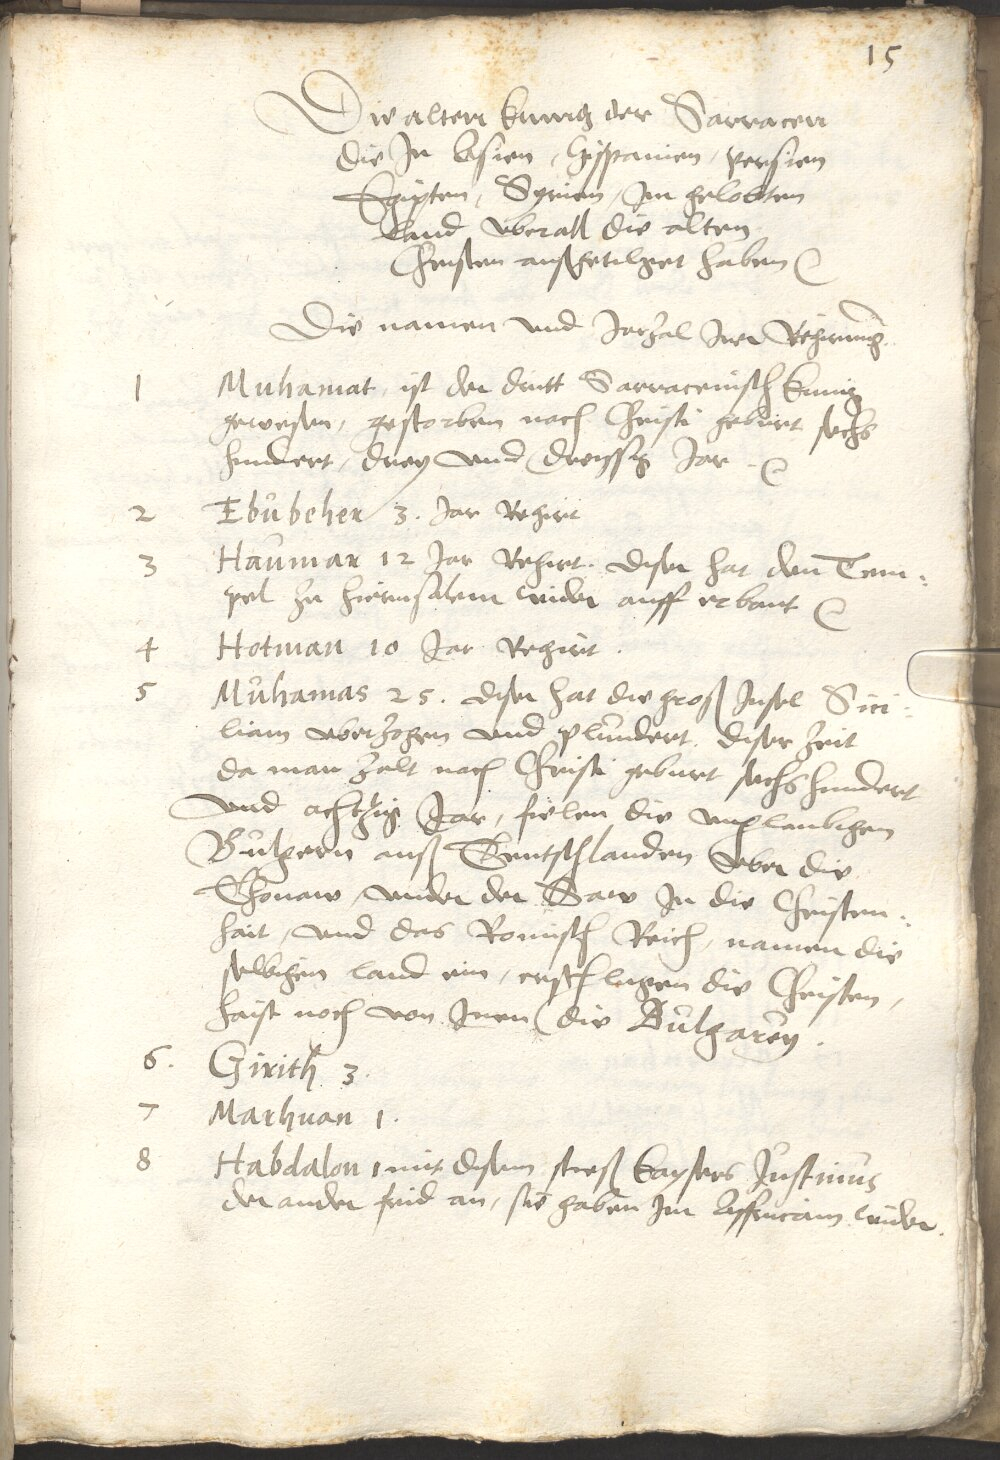 15
Die alten kunig der Sarracen
die In Asien, Hispanien, Persien
Egipten, Syrien, Im gelobten
Land vberall die alten
Christen außgetilget haben
Die namen vnd Jarzal Irer Regirung
1 Muhamat ist der dritt Sarracenisch kunig
gewesen, gestorben nach Christi geburt sechs
hundert, drey vnd dreissig Jar.
2 Ebubeher 3. Jar Regirt
3 Haumar 12 Jar Regirt. diser hat den Tem-
pel zu Hierusalem wider auff erbaut
4 Hotman 10 Jar Regirt.
5 Muhamas 25. diser hat die groß Insel Sici-
liam vberzogen vnd plundert. diser zeit
da man zalt nach Christi geburt sechs hundert
vnd achtzig Jar, fielen die vnglaubigen
Bulgern auß Teutschlanden vber die
Thonaw, vnder der Saw In die Christen-
hait, vnd das Romisch Reich, namen die
selbigen land ein, erschlugen die Christen,
haist noch von Inen die Bulgarey.
6. Girith 3.
7 Marhuan 1.
8 Habdalon 1 mit disem stieß kaysers Justinus
der ander frid an, sie gaben Im Affricam wider.